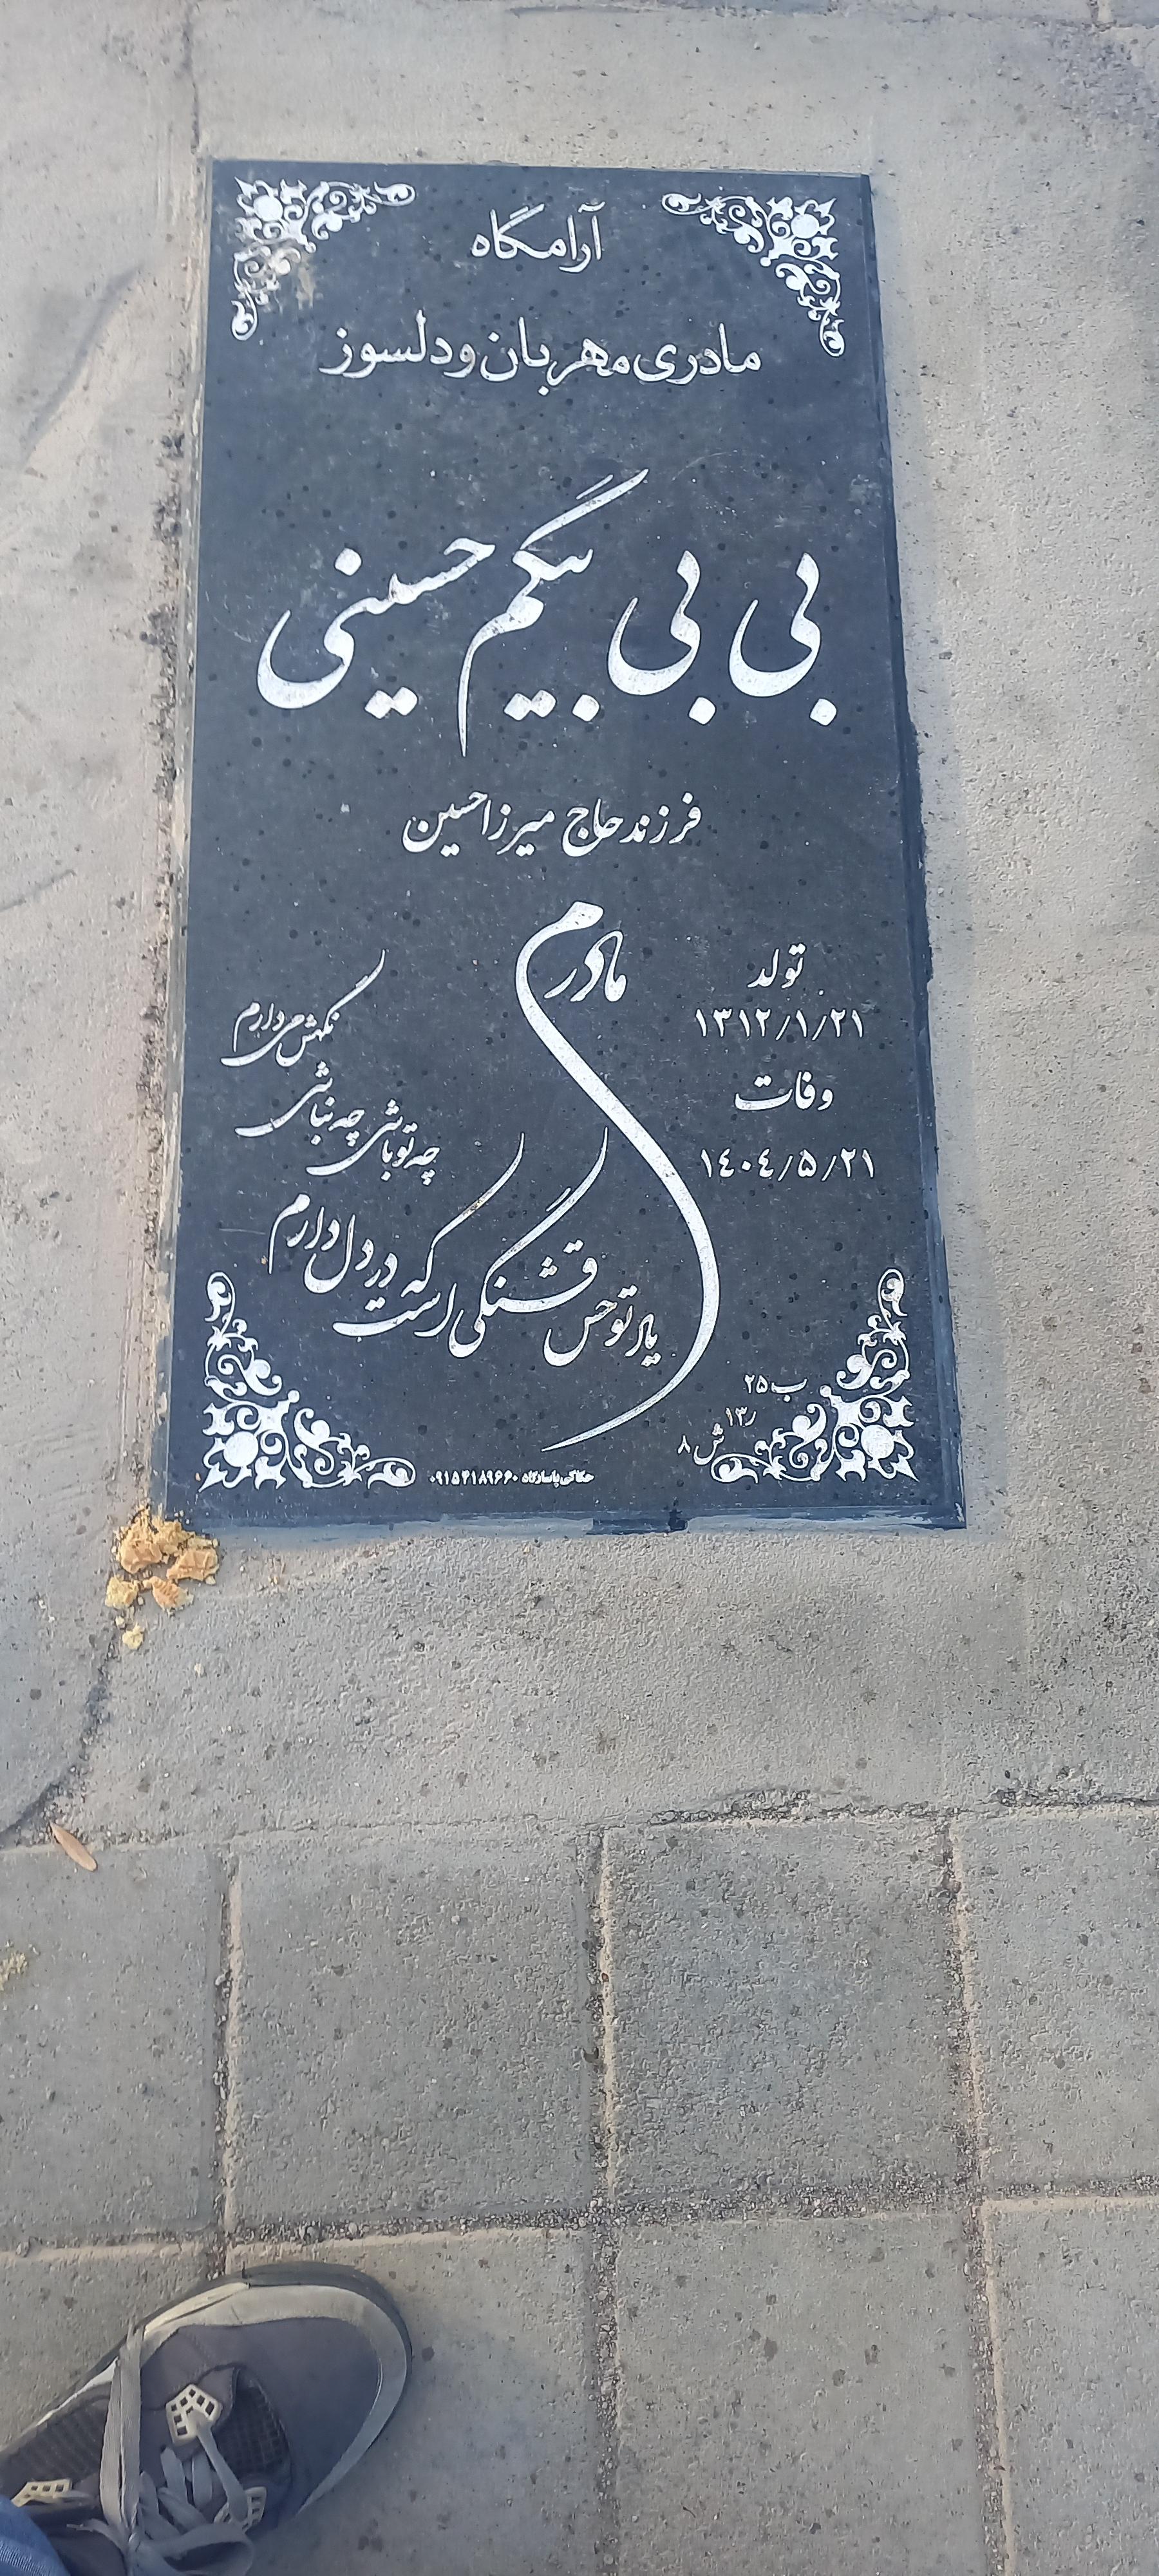 آرامگاه
مادری مهربان و دلسوز
بی بی بیگم حسینی
فرزند حاج میرزا حسین
تولد
۱۳۱۲/۱/۲۱
وفات
۱٤۰٤/۵/۲۱
مادرم
یاد تو حس قشنگی است که در دل دارم
چه تو باشی چه نباشی
نگهش می دارم
ب ۲۵
ر ۱۳
ش ۸
حکاکی پاسارگاد